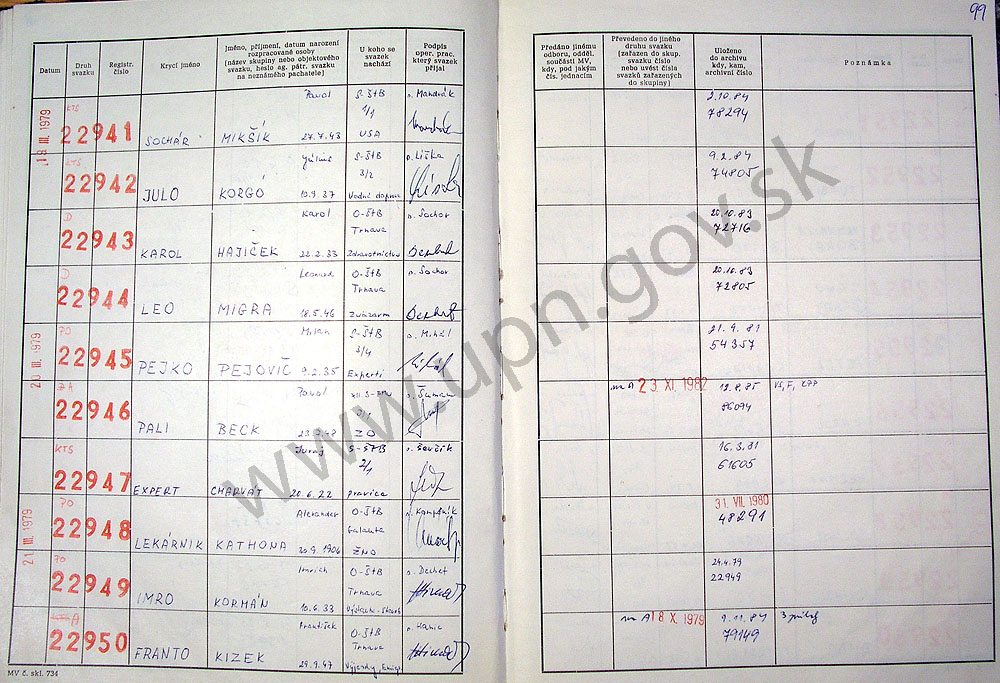 99
Datum
Druh svazku
Registr. číslo
Krycí jméno
Jméno, příjmení, datum narození rozpracované osoby (název skupiny nebo objektového svazku, heslo ag. pátr. svazku na neznámého pachatele)
U koho se svazek nachází
Podpis oper. prac. který svazek přijal
Předáno jinému odboru, odděl. součásti MV, kdy, pod jakým čís. jednacím
Převedeno do jiného druhu svazku (zařazen do skup. svazku číslo nebo uvést čísla svazků zařazených do skupiny)
Uloženo do archivu kdy, kam, archivní číslo
Poznámka
KTS
Pavol S-ŠtB s. Mandrák 2.10.84
1/1 78294
22941 SOCHÁR MIKŠÍK 27.7.43 USA
KTS Július S-ŠtB s. Liška 9.2.84
3/2 74805
22942 JULO KORGÓ 10.9.37 Vodná doprava
D Karol O-ŠtB s. Sochor 20.10.83
Trnava 72716
22943 KAROL HAJÍČEK 22.2.33 Zdravotníctvo
D Leonard O-ŠtB s. Sochor 20.10.83
Trnava 72805
22944 LEO MIGRA 18.5.46 Zväzarm
20 III. 1979
PO Milan S-ŠtB s. Mihál 21.9.81
3/4 54357
22945 PEJKO PEJOVIČ 9.2.35 Experti
Pavol s. Šuman 23 XI. 1982 12.8.85
22946 PALI BECK ZO 86094
KTS Juraj S-ŠTB s. Ševčík 16.3.81
2/1 61605
22947 EXPERT CHARVÁT 20.6.22 pravica
21 III. 1979
PO Alexander O-ŠtB 31. VII. 1980
Galanta 48291
22948 LEKÁRNIK KATHONA 30.9.1906 ŽNO
PO Imrich O-ŠtB s. Dechet 24.4.79
Trnava 22949
22949 IMRO KORMÁN 10.6.33
A František O-ŠtB s. Hanic m A 18 X 1979 9.11.84
Trnava 79149
22950 FRANTO KIZEK 29.9.47
MV č. skl. 734
www.upn.gov.sk